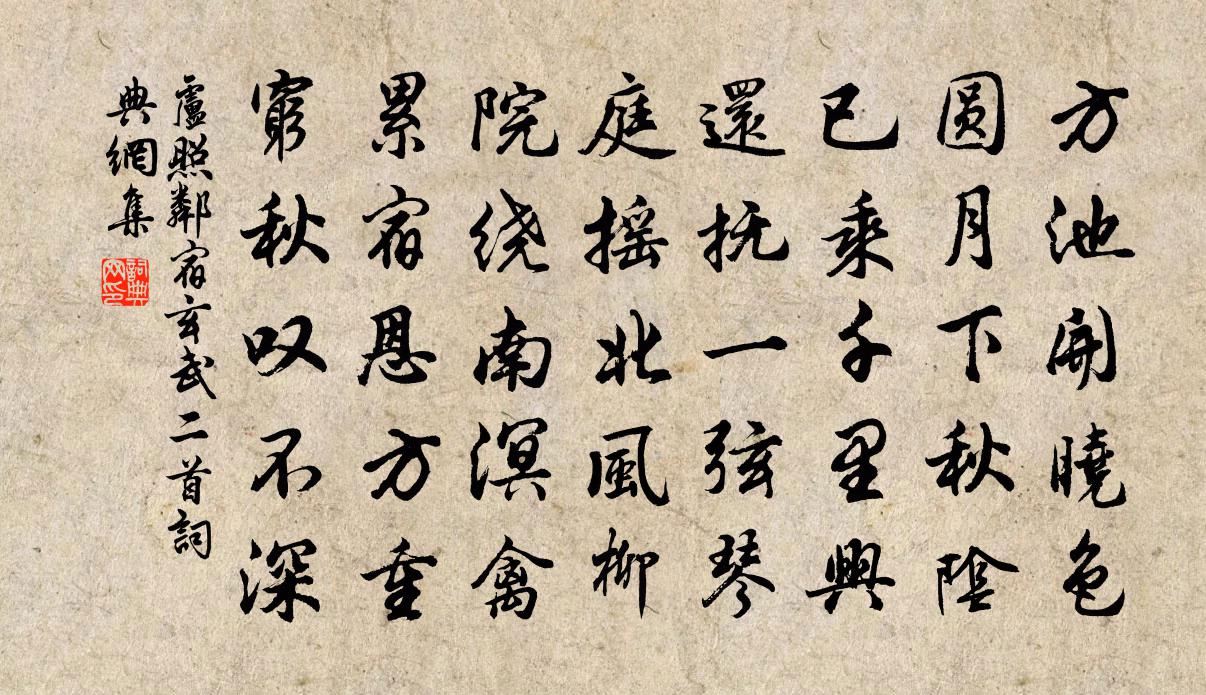 方池開曉色
圓月下秋陰
已乘千里興
還抚一弦琴
庭摇北風柳
院绕南溟禽
累宿恩方重
窮秋叹不深
盧照鄰宿玄武二首詞
典網集
詞典网印